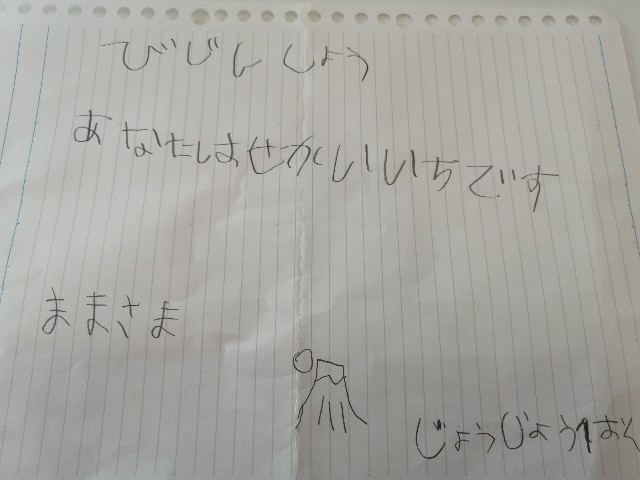 びじんしょう
あなたはせかいいちです
ままさま
じょうじょう